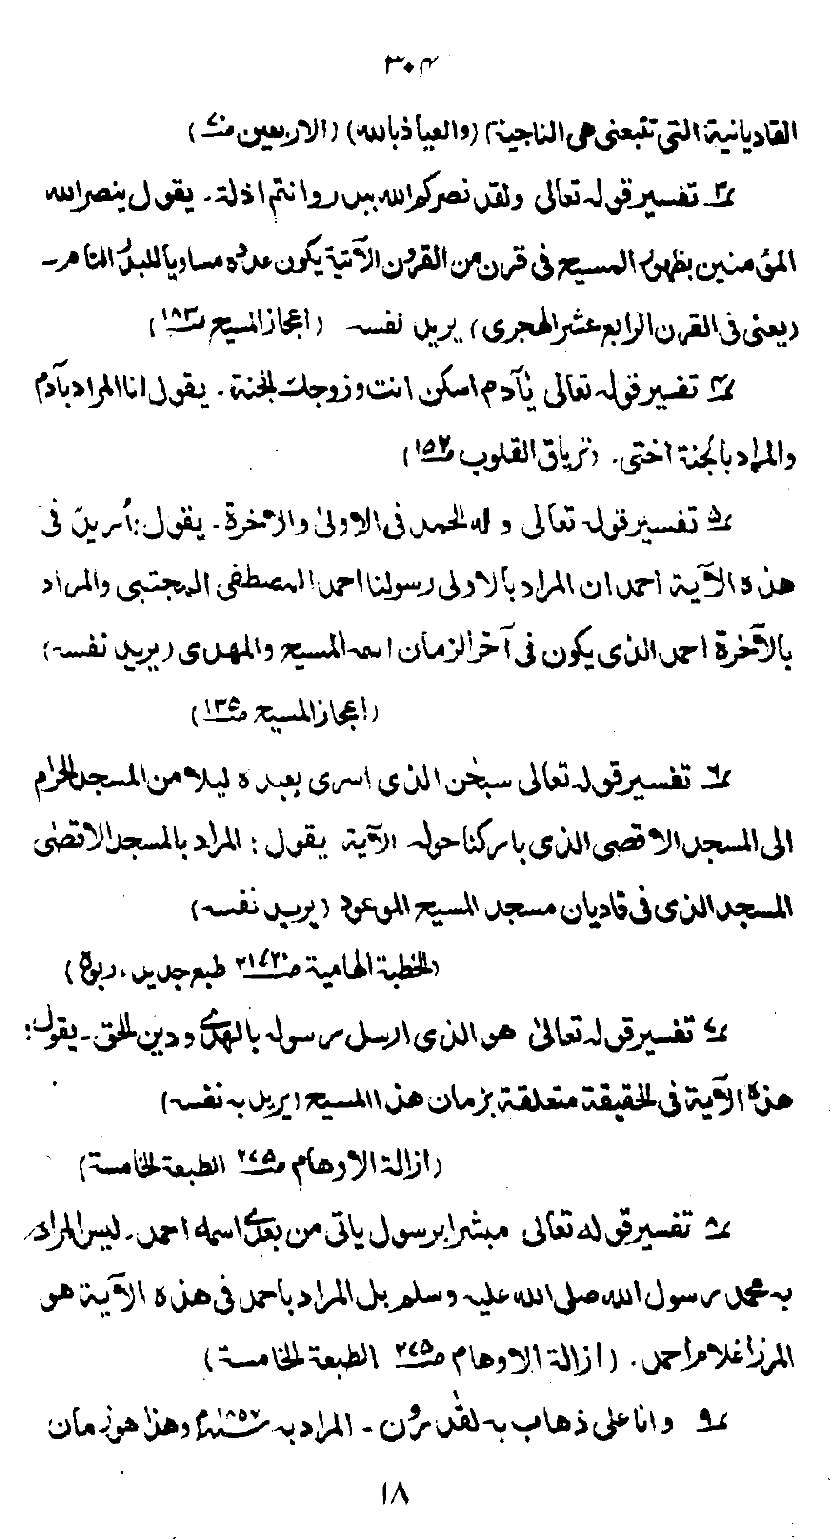 ٣٠٤
القاديانية التى تتبعنى هى الناجية (والعياذ بالله) (الاربعين ص٧)
٣ـ تفسير قوله تعالى ولقد نصركم الله ببدر وانتم اذلة ـ يقول ينصر الله
المؤمنين بظهور المسيح فى قرن من القرون الآتية يكون عدده مساويا للبدر التام ـ
(يعنى فى القرن الرابع عشر الهجرى) يريد نفسه (اعجاز المسيح ص١٨٣)
٤ـ تفسير قوله تعالى يٰآدم اسكن انت وزوجك الجنة ـ يقول انا المراد بآدم
والمراد بالجنة اختى ـ (ترياق القلوب ص١٥٢)
٥ـ تفسير قوله تعالى و له الحمد فى الاولىٰ والآخرة ـ يقول: أُريد فى
هذه الآية احمدان المراد بالاولى رسولنا احمد المصطفى المجتبى والمراد
بالآخرة احمد الذى يكون فى آخر الزمان اسمه المسيح والمهدى (يريد نفسه)
(اعجاز المسيح ص١٣٥)
٦ـ تفسير قوله تعالى سبحٰن الذى اسرى بعبده ليلا من المسجد الحرام
الى المسجد الاقصى الذى باركنا حوله الآية يقول: المراد بالمسجد الاقصٰى
المسجد الذى فى قاديان مسجد المسيح الموعود (يريد نفسه)
(الخطبة الهامية ص٢٠، ٢١ طبع جديد، ربوة)
٧ـ تفسير قوله تعالىٰ هو الذى ارسل رسوله بالهدىٰ ودين الحق ـ يقول:
هذه الآية فى الحقيقة متعلقة بزمان هذا المسيح (يريد به نفسه)
(ازالة الاوهام ص٢٧٥ الطبعة الخامسة)
٨ـ تفسير قوله تعالى مبشرا برسول ياتى من بعدى اسمه احمد ـ ليس المراد
به محمد رسول الله صلى الله عليه وسلم بل المراد باحمد فى هذه الآية هو
المرزا غلام احمد ـ (ازالة الاوهام ص٢٧٥ الطبعة الخامسة)
٩ـ وانا على ذهاب به لقٰدرون ـ المراد به سنة ١٨٥٧ء وهذا هو زمان
١٨